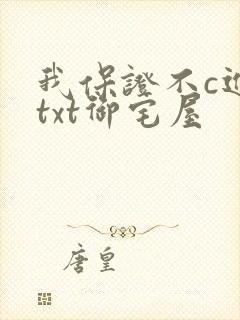 我保證不c进
txt御宅屋
唐皇